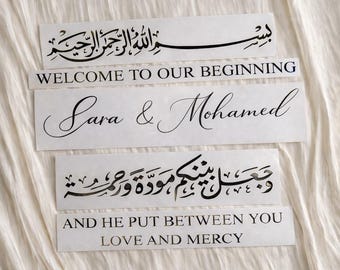 بسم الله الرحمن الرحيم
WELCOME TO OUR BEGINNING
Sara & Mohamed
وجعل بينكم مودة ورحمة
AND HE PUT BETWEEN YOU
LOVE AND MERCY